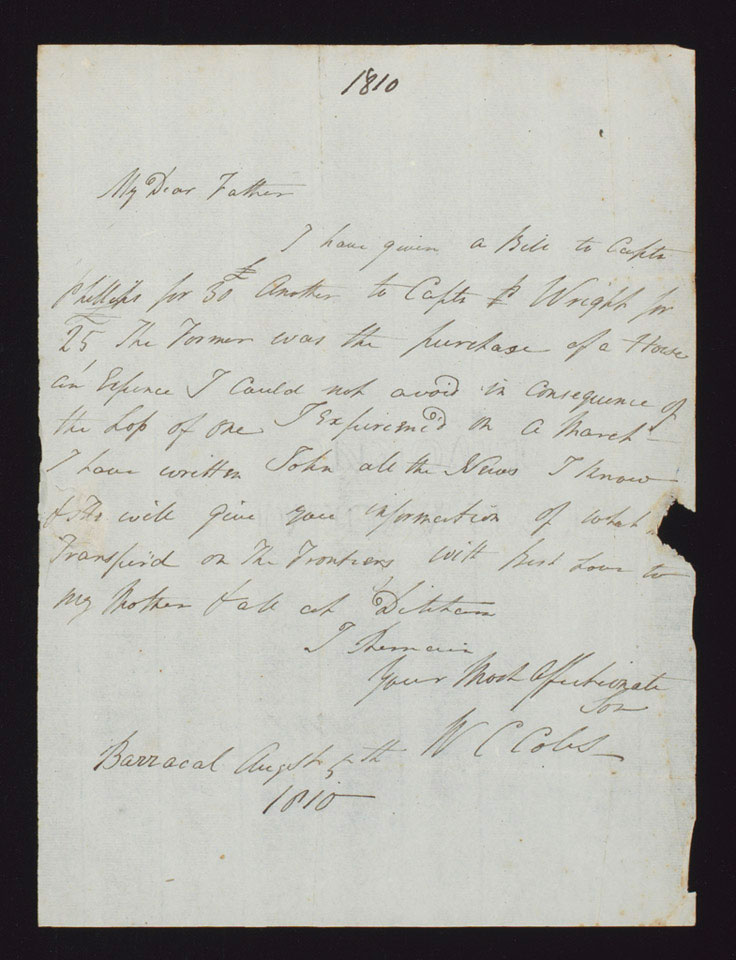 1810
My Dear Father
I have given a Bill to Captn
Phillips for 30£ Another to Captn P Wright for
25 The Former was the purchase of a Horse
an Expence I Could not avoid in Consequence of
the Loss of one I Experienc'd on a March
I have written John all the News I know
& He will give you information of what
Transpir'd on The Frontiers with Best Love to
my Mother & all at Ditcham
I Remain
Your Most Affectionate
Son
W C Coles
Barracal Augst 5th
1810